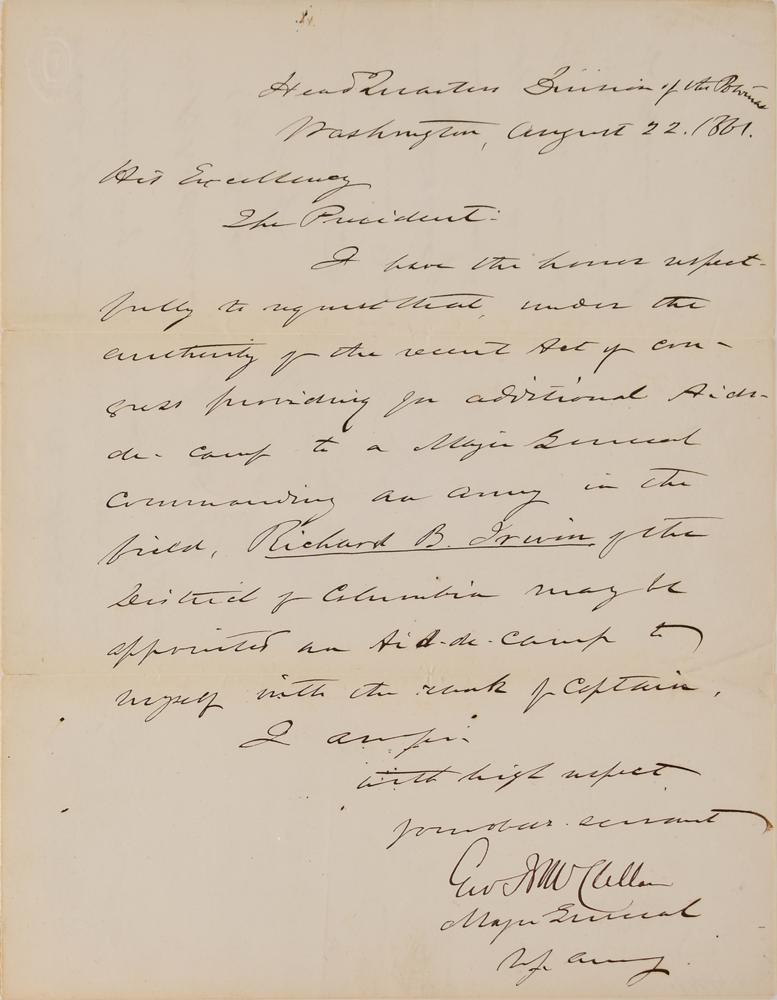 Head Quarters Division of the Potomac
Washington, August 22. 1861.
His Excellency
The President:
I have the honor respect-
fully to request that, under the
authority of the recent Act of Con-
gress providing for additional Aids-
de-camp to a Major General
commanding an army in the
field, Richard B. Irwin of the
District of Columbia may be
appointed an Aid-de-camp to
myself with the rank of Captain.
I am sir
with high respect
your obdt. servant
Geo B McClellan
Major General
U.S. Army